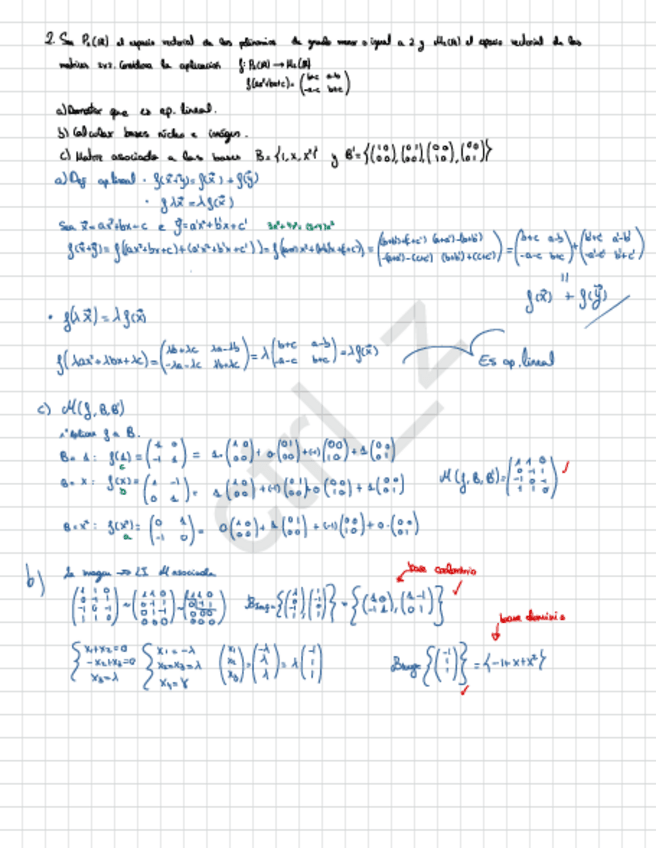 2. Sea P₂(ℝ) el espacio vectorial de los polinomios de grado menor o igual a 2 y M₂(ℝ) el espacio vectorial de las
matrices 2x2. Considera la aplicación f: P₂(ℝ) → M₂(ℝ)
f(ax²+bx+c) = (b+c a-b; -a-c b+c)
a) Demostrar que es ap. lineal.
b) Calcular bases núcleo e imagen.
c) Matriz asociada a las bases B = {1, x, x²} y B' = {(1 0; 0 0), (0 1; 0 0), (0 0; 1 0), (0 0; 0 1)}
a) Def ap lineal · f(x⃗+y⃗) = f(x⃗) + f(y⃗)
· f λx⃗ = λ f(x⃗)
Sea x⃗ = ax²+bx+c e y⃗ = a'x²+b'x+c'
f(x⃗+y⃗) = f((ax²+bx+c)+(a'x²+b'x+c')) = = (b+c a-b; -a-c b+c) + (b'+c' a'-b'; -a'-c' b'+c')
||
f(x⃗) + f(y⃗)
· f(λx⃗) = λ f(x⃗)
f(λax²+λbx+λc) = (λb+λc λa-λb; -λa-λc λb+λc) = λ (b+c a-b; -a-c b+c) = λ f(x⃗) Es ap. lineal
c) M(f, B, B')
B = 1: f(1) = (1 0; -1 1) = 1·(1 0; 0 0) + 0·(0 1; 0 0) + (-1)(0 0; 1 0) + 1(0 0; 0 1)
c
B = x: f(x) = (1 -1; 0 1) = 1(1 0; 0 0) + (-1)(0 1; 0 0) + 0(0 0; 1 0) + 1(0 0; 0 1)
b
M(f, B, B') = (1 1 0; 0 -1 1; -1 0 -1; 1 1 0)
B = x²: f(x²) = (0 1; -1 0) = 0(1 0; 0 0) + 1(0 1; 0 0) + (-1)(0 0; 1 0) + 0·(0 0; 0 1)
a
b) La imagen → LI M asociada
base codominio
(1 1 0; 0 -1 1; -1 0 -1; 1 1 0) ~ (1 1 0; 0 -1 1; 0 1 -1; 0 0 0) ~ (1 1 0; 0 -1 1; 0 0 0; 0 0 0) = {(1 0; -1 1), (1 -1; 0 1)}
base dominio
{x₁+x₂=0 {x₁=-λ (x₁; x₂; x₃) = (-λ; λ; λ) = λ(-1; 1; 1) {(-1; 1; 1)} = {-1+x+x²}
-x₂+x₃=0 x₂=x₃=λ
x₃=λ